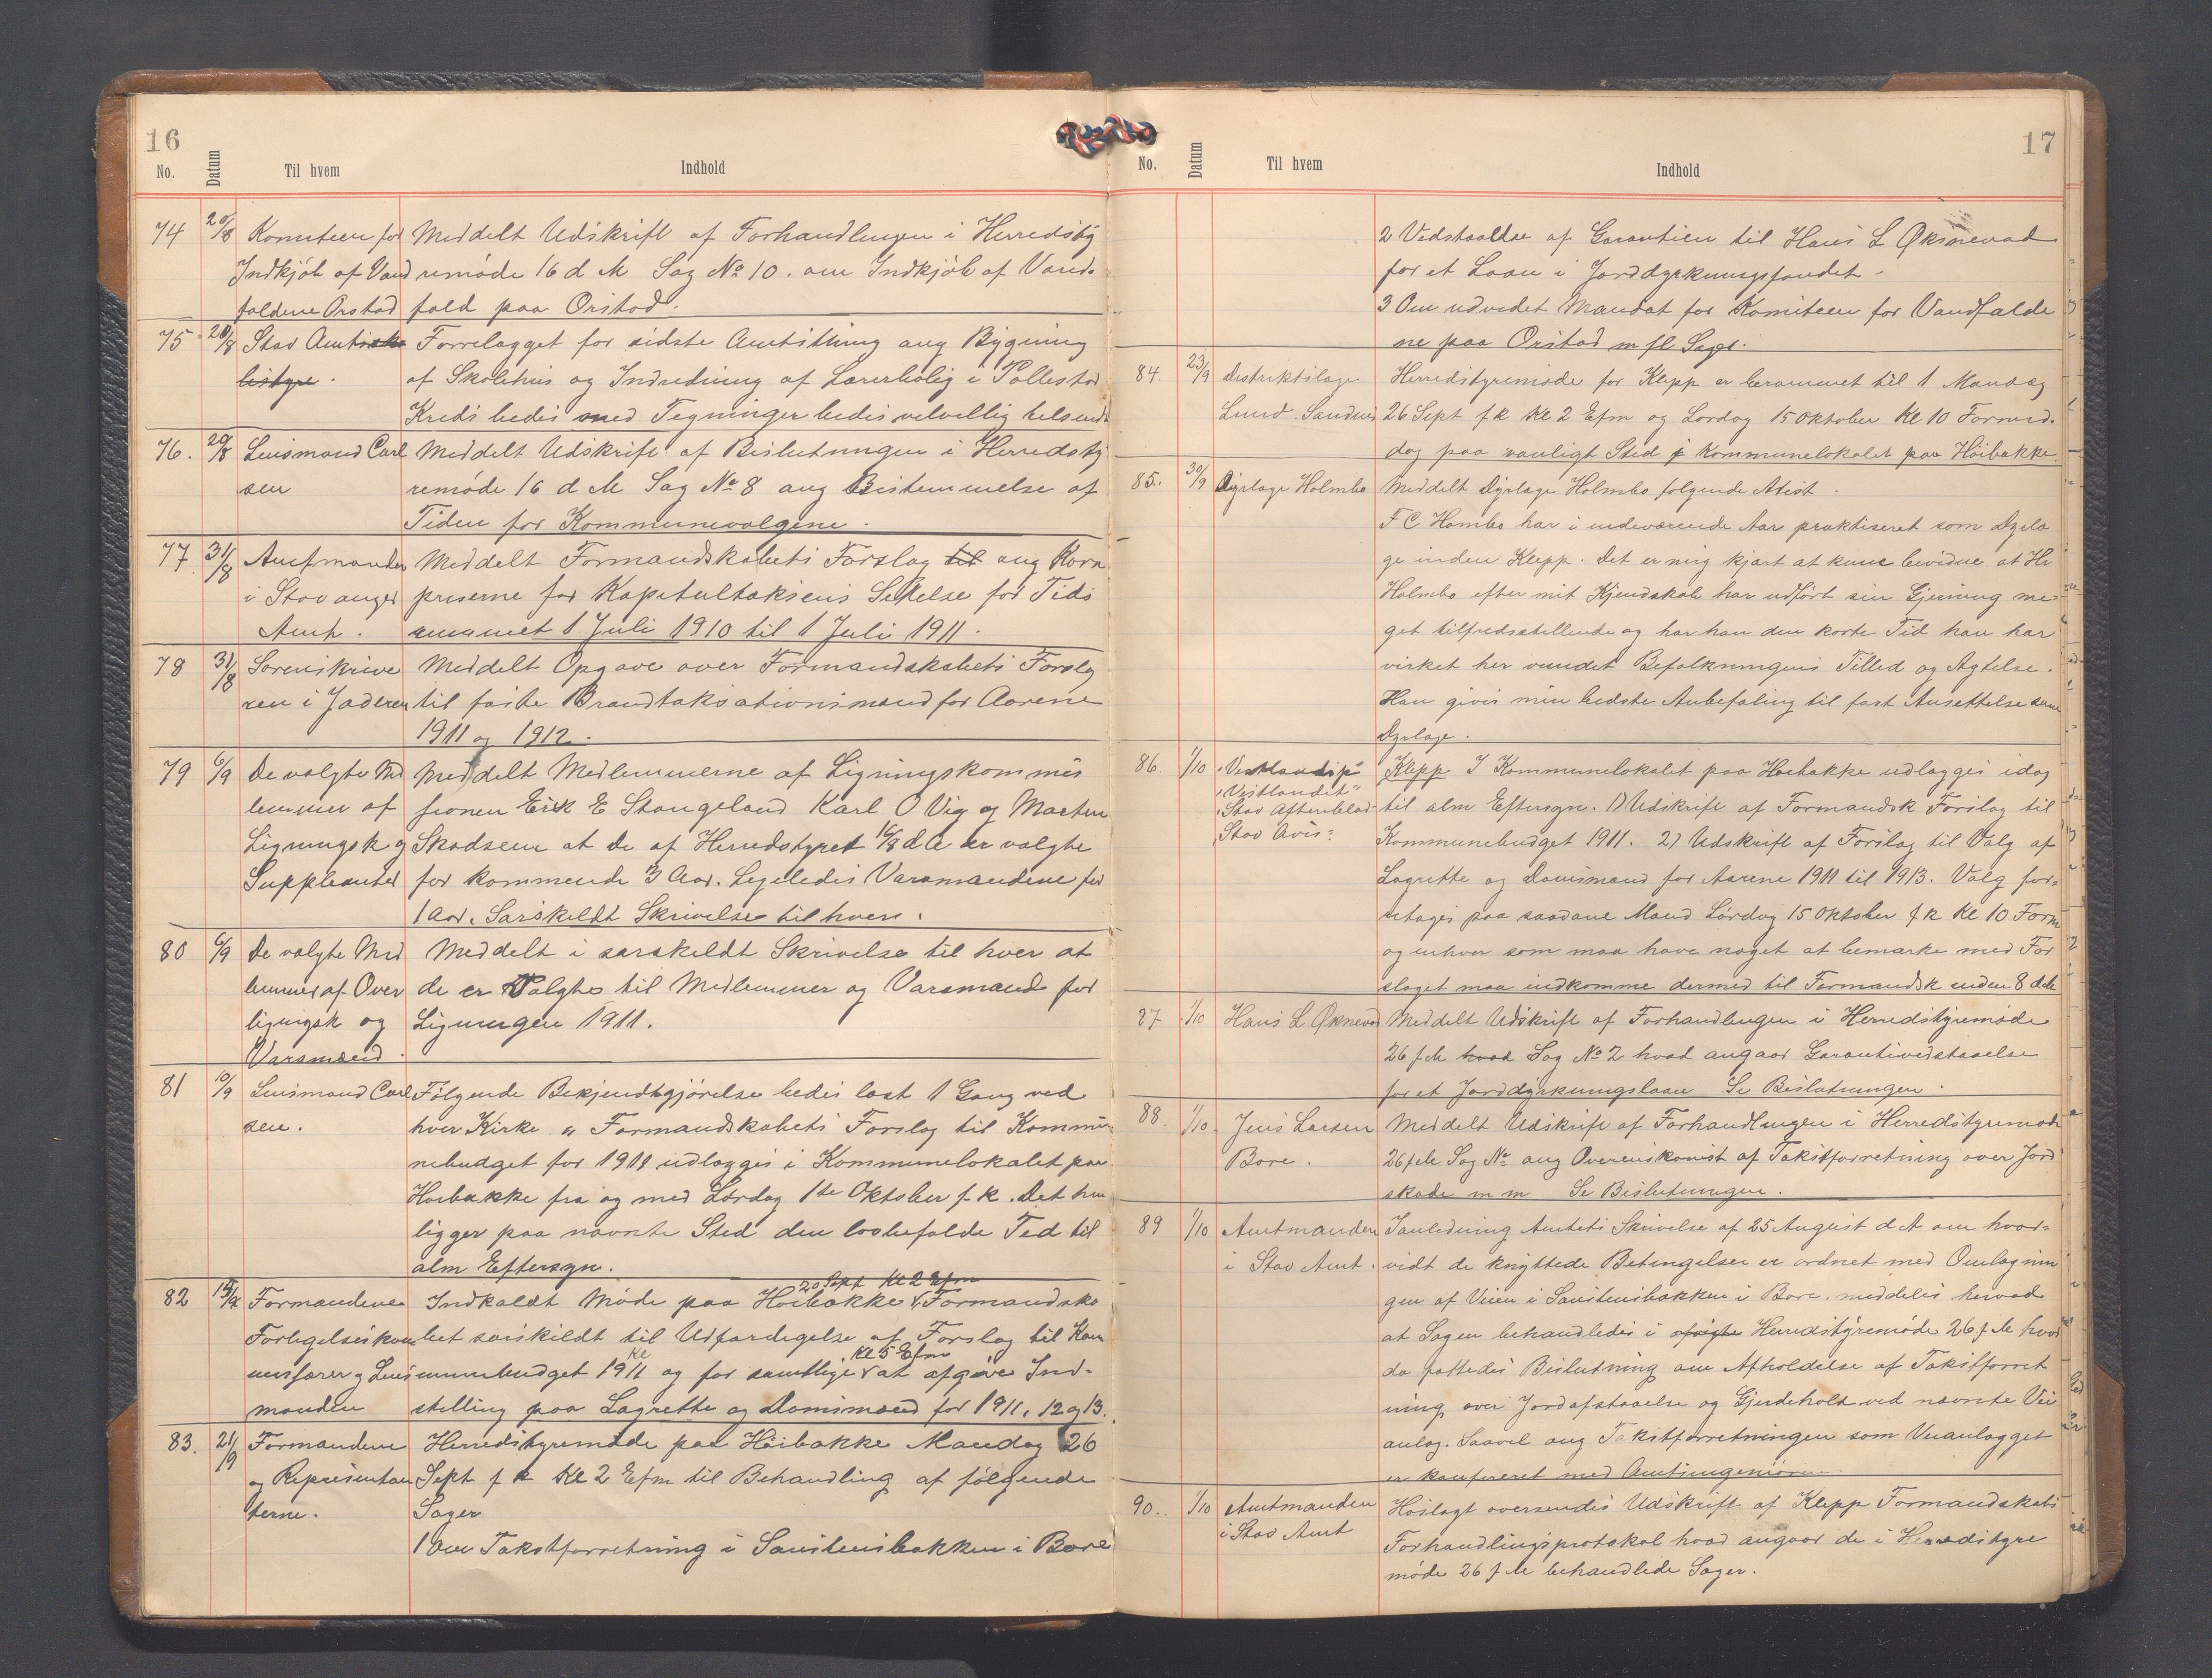 16
No. Datum Til hvem Indhold
74 20/8 Komiteen for Meddelt Udskrift af Forhandlingen i Herredsty
Indkjøb af Vand remøde 16 d M Sag No 10. om Indkjøb af Vand-
faldene Orstad fald paa Orstad.
75 20/8 Stav Amts Forrelagget for sidste Amtsthing ang Bygning
af Skolehus og Indredning af Lærerbolig i Pollestad
Kreds bedes med Tegninger bedes velvillig tilsendt
76. 20/8 Lensmand Carl Meddelt Udskrift af Beslutningen i Herredsty
sen remøde 16 d M Sag No 8 ang Bestemmelse af
Tiden for Kommunevalgene.
77 31/8 Amtmanden Meddelt Formandskabets Forslag til ang Korn
i Stavanger priserne for Kapitultaksens Settelse for Tids
Amt. rummet 1 Juli 1910 til 1 Juli 1911.
78 31/8 Sorenskrive Meddelt Opgave over Formandskabets Forslag
ren i Jæderen til faste Brandtaksationsmænd for Aarene
1911 og 1912.
79 6/9 De valgte Med Meddelt Medlemmerne af Ligningskommis
lemmer af sionen Erik E Stangeland Karl O Vig og Marten
Ligningsk og Skadsem at De af Herredstyret 16/8 d A er valgte
Suppleanter for kommende 3 Aar. Ligeledes Varamændene for
1 Aar. Særskildt Skrivelse til hver.
80 6/9 De valgte Med Meddelt i særskildt Skrivelse til hver at
lemmer af Over de er Valgte til Medlemmer og Varamænd for
ligningsk og Ligningen 1911.
Varamænd.
81 10/9 Lensmand Carl Følgende Bekjendtgjørelse bedes læst 1 Gang ved
sen. hver Kirke „ Formandskabets Forslag til Kommu
nebudget for 1911 udlægges i Kommunelokalet paa
Høibakke fra og med Lørdag 1ste Oktober f k. Det hen
ligger paa nævnte Sted den lovbefalde Tid til
alm Eftersyn.
20 Sept Kl 2 Efm
82 15/9 Formændene Indkaldt Møde paa Høibakke Formandska
Forligelseskom bet særskildt til Udfærdigelse af Forslag til Kom
Kl 5 Efm
missærer og Lens munebudget 1911 og for samtlige at afgive Ind-
manden stilling paa Lagrette og Domsmænd for 1911, 12 og 13.
83. 21/9 Formændene Herredstyremøde paa Høibakke Mandag 26
og Repræsentan Sept f k Kl 2 Efm til Behandling af følgende
terne. Sager
1 Om Takstforretning i Sanstensbakken i Bore
17
No. Datum Til hvem Indhold
2 Vedstaaelse af Garantien til Hans L Øksnevad
for et Laan i Jorddyrkningsfondet.
3 Om udvidet Mandat for Komiteen for Vandfalde
ne paa Orstad m fl Sager.
84. 23/9 Distriktslæge Herredstyremøde for Klepp er berammet til 1 Mandag
Lund Sandnes 26 Sept f k Kl 2 Efm og Lørdag 15 Oktober Kl 10 Formid.
dag paa vanligt Sted Kommunelokalet paa Høibakke.
85. 30/9 Dyrlæge Holmbo Meddelt Dyrlæge Holmbo følgende Attest.
F C Hombo har i indeværende Aar praktiseret som Dyrlæ
ge inden Klepp. Det er mig kjært at kunne bevidne at Hr
Holmbo efter mit Kjendskab har udført sin Gjerning me-
get tilfredsstillende og har han den korte Tid han har
virket her vundet Befolkningens Tillid og Agtelse.
Han gives min bedste Anbefaling til fast Ansettelse som
Dyrlæge.
86. 1/10 „Vestlandsp" Klepp I Kommunelokalet paa Høibakke udlægges idag
„Vestlandet" til alm Eftersyn. 1) Udskrift af Formandsk Forslag til
Stav Aftenblad Kommunebudget 1911. 2) Udskrift af Forslag til Valg af
Stav Avis: Lagrette og Domsmænd for Aarene 1911 til 1913. Valg for-
retages paa saadane Mænd Lørdag 15 Oktober f k Kl 10 Form
og enhver som maa have noget at bemærke med For
slaget maa indkomme dermed til Formandsk inden 8 dele
87 1/10 Hans L Øksnevad Meddelt Udskrift af Forhandlingen i Herredstyremøde
26 f M Sag No 2 hvad angaar Garantivedstaaelse
for et Jorddyrkningslaan Se Beslutningen.
88. 1/10. Jens Larsen Meddelt Udskrift af Forhandlingen i Herredstyremøde
Bore. 26 f M Sag No ang Overenskomst af Takstforretning over Jord
skade m m Se Beslutningen.
89 1/10 Amtmanden Ianledning Amtets Skrivelse af 25 August d A om hvor-
i Stav Amt. vidt de knyttede Betingelser er ordnet med Omlægnin
gen af Veien i Sanstensbakken i Bore. meddeles herved
at Sagen behandledes i Herredstyremøde 26 f M hvor
da fattedes Beslutning om Afholdelse af Takstforret
ning over Jordafstaaelse og Gjerdehold ved nævnte Vei
anlæg. Saavel ang Takstforretningen som Veianlægget
er konfereret med Amtsingeniøren.
90.. 1/10 Amtmanden Hoslagt oversendes Udskrift af Klepp Formandskabs
i Stav Amt Forhandlingsprotokol hvad angaar de i Herredstyre
møde 26 f M behandlede Sager.